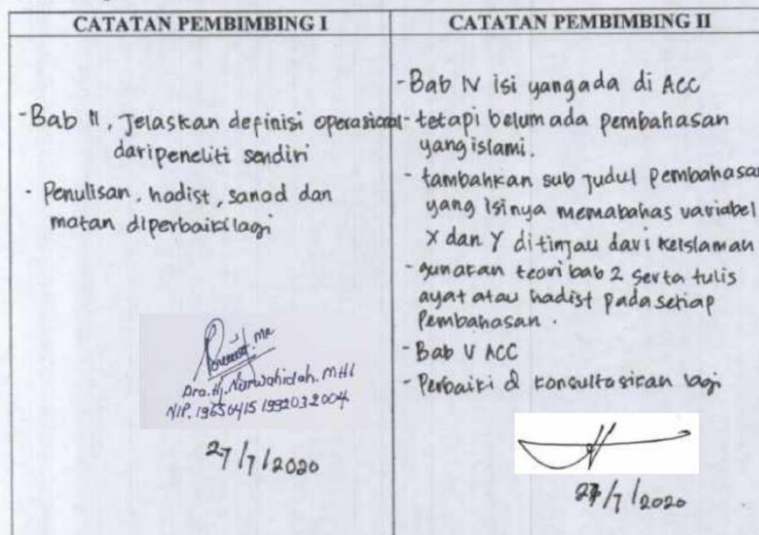 CATATAN PEMBIMBING I
- Bab II, Jelaskan definisi operasional
daripeneliti sendiri
- Penulisan, hadist, sanad dan
matan diperbaiki lagi
Dra. Hj. Nurwahidah. MHI
NIP. 19650415 199203 2 004
27/7/2020
CATATAN PEMBIMBING II
- Bab IV isi yang ada di ACC
- tetapi belum ada pembahasan
yang islami.
- tambahkan sub judul pembahasan
yang isinya memabahas variabel
X dan Y ditinjau dari keislaman
- gunakan teori bab 2 serta tulis
ayat atau hadist pada setiap
Pembahasan.
- Bab V ACC
- Perbaiki & konsultasikan lagi
/7/2020